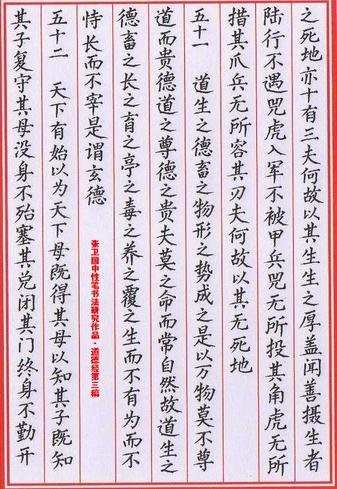 之死地亦十有三夫何故以其生生之厚盖闻善摄生者
陆行不遇兕虎入军不被甲兵兕无所投其角虎无所
措其爪兵无所容其刃夫何故以其无死地
五十一 道生之德畜之物形之势成之是以万物莫不尊
道而贵德道之尊德之贵夫莫之命而常自然故道生之
德畜之长之育之亭之毒之养之覆之生而不有为而不
恃长而不宰是谓玄德
张卫国中性笔书法研究作品·道德经第三稿
五十二 天下有始以为天下母既得其母以知其子既知
其子复守其母没身不殆塞其兑闭其门终身不勤开